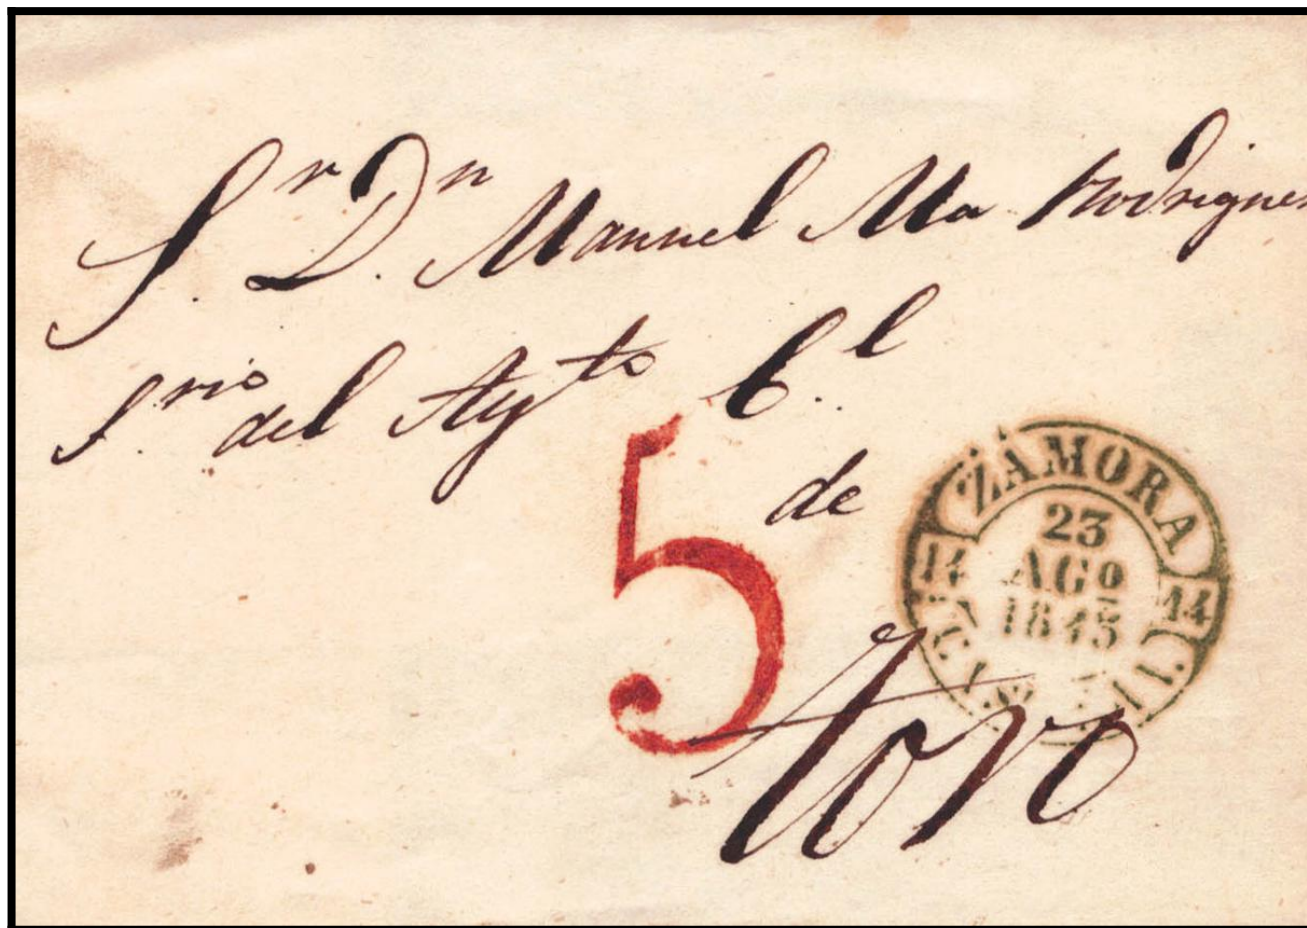 Sr. Dn. Manuel Ma Rodriguez
Srio del Aytto C.l
de
toro
5
ZAMORA
23
AGO
1845
14 14